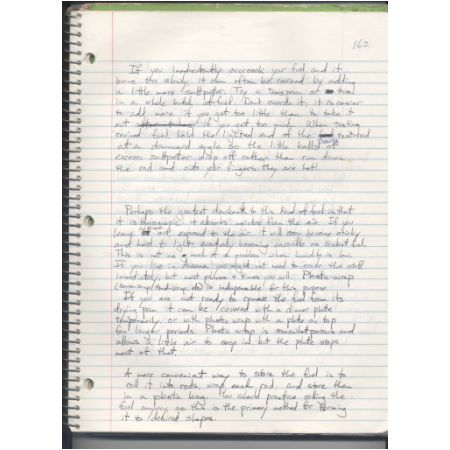 162
If you inadvertently overcook your fuel and it
burns too slowly it can often be revived by adding
a little more saltpeter. Try a teaspoon or two
in a whole batch of fuel. Don't overdo it, it is easier
to add more if you got too little than to take it
out if you got too much. When testing
revived fuel hold the lighted end of the test rod
at a downward angle so the little balls of
excess saltpeter drop off rather than run down
the rod and onto your fingers they are hot!
Perhaps the greatest drawback to this kind of fuel is that
it is hygroscopic it absorbs moisture from the air. If you
leave it out exposed to the air it will soon become sticky
and hard to light eventually becoming unusable as rocket fuel.
This is not as much of a problem when humidity is low.
If you live in Arizona you might not need to cover the stuff
immediately, but most places & times you will. Plastic wrap
is indispensable for this purpose
If you are not ready to remove the fuel from its
drying pan it can be covered with a dinner plate
temporarily or with plastic wrap with a plate on top
for longer periods. Plastic wrap is somewhat porous and
allows a little air to seep in but the plate stops
most of that.
A more convenient way to store the fuel is to
roll it into rods, wrap each rod and store them
in a plastic bag. You should practice rolling the
fuel anyway as this is the primary method for forming
it to desired shapes.